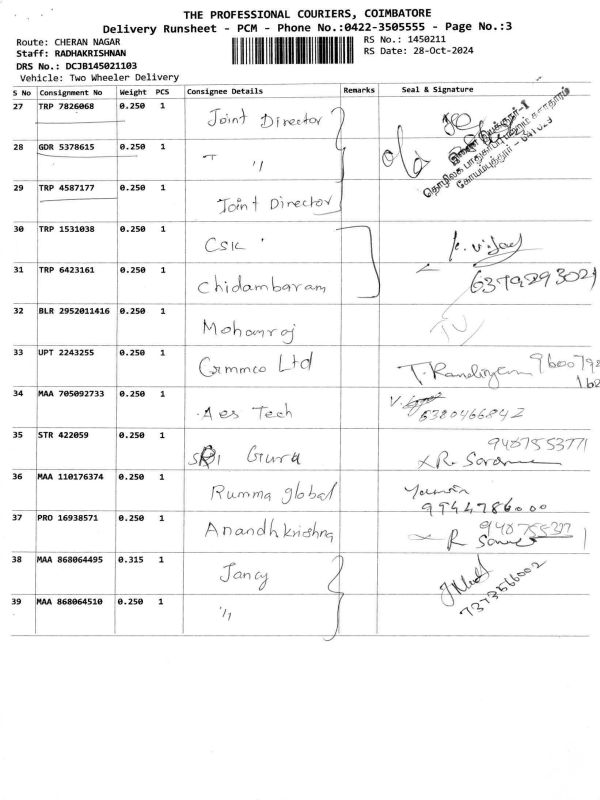 THE PROFESSIONAL COURIERS, COIMBATORE
Delivery Runsheet - PCM - Phone No.:0422-3505555 - Page No.:3
Route: CHERAN NAGAR
RS No.: 1450211
Staff: RADHAKRISHNAN
RS Date: 28-Oct-2024
DRS No.: DCJB145021103
Vehicle: Two Wheeler Delivery
S No Consignment No Weight PCS Consignee Details Remarks Seal & Signature
27 TRP 7826068 0.250 1 Joint Director
28 GDR 5378615 0.250 1 "
29 TRP 4587177 0.250 1 Joint Director
கோயம்புத்தூர் - 641023
30 TRP 1531038 0.250 1 CSK
31 TRP 6423161 0.250 1 Chidambaram
32 BLR 2952011416 0.250 1 Mohanraj
33 UPT 2243255 0.250 1 Gmmco Ltd
34 MAA 705092733 0.250 1 Aes Tech 6380466842
35 STR 422059 0.250 1 SRI Guru 9487553771
36 MAA 110176374 0.250 1 Rumma global 9944786000
37 PRO 16938571 0.250 1 Anandhkrishna
38 MAA 868064495 0.315 1 Jancy 7373566002
39 MAA 868064510 0.250 1 "